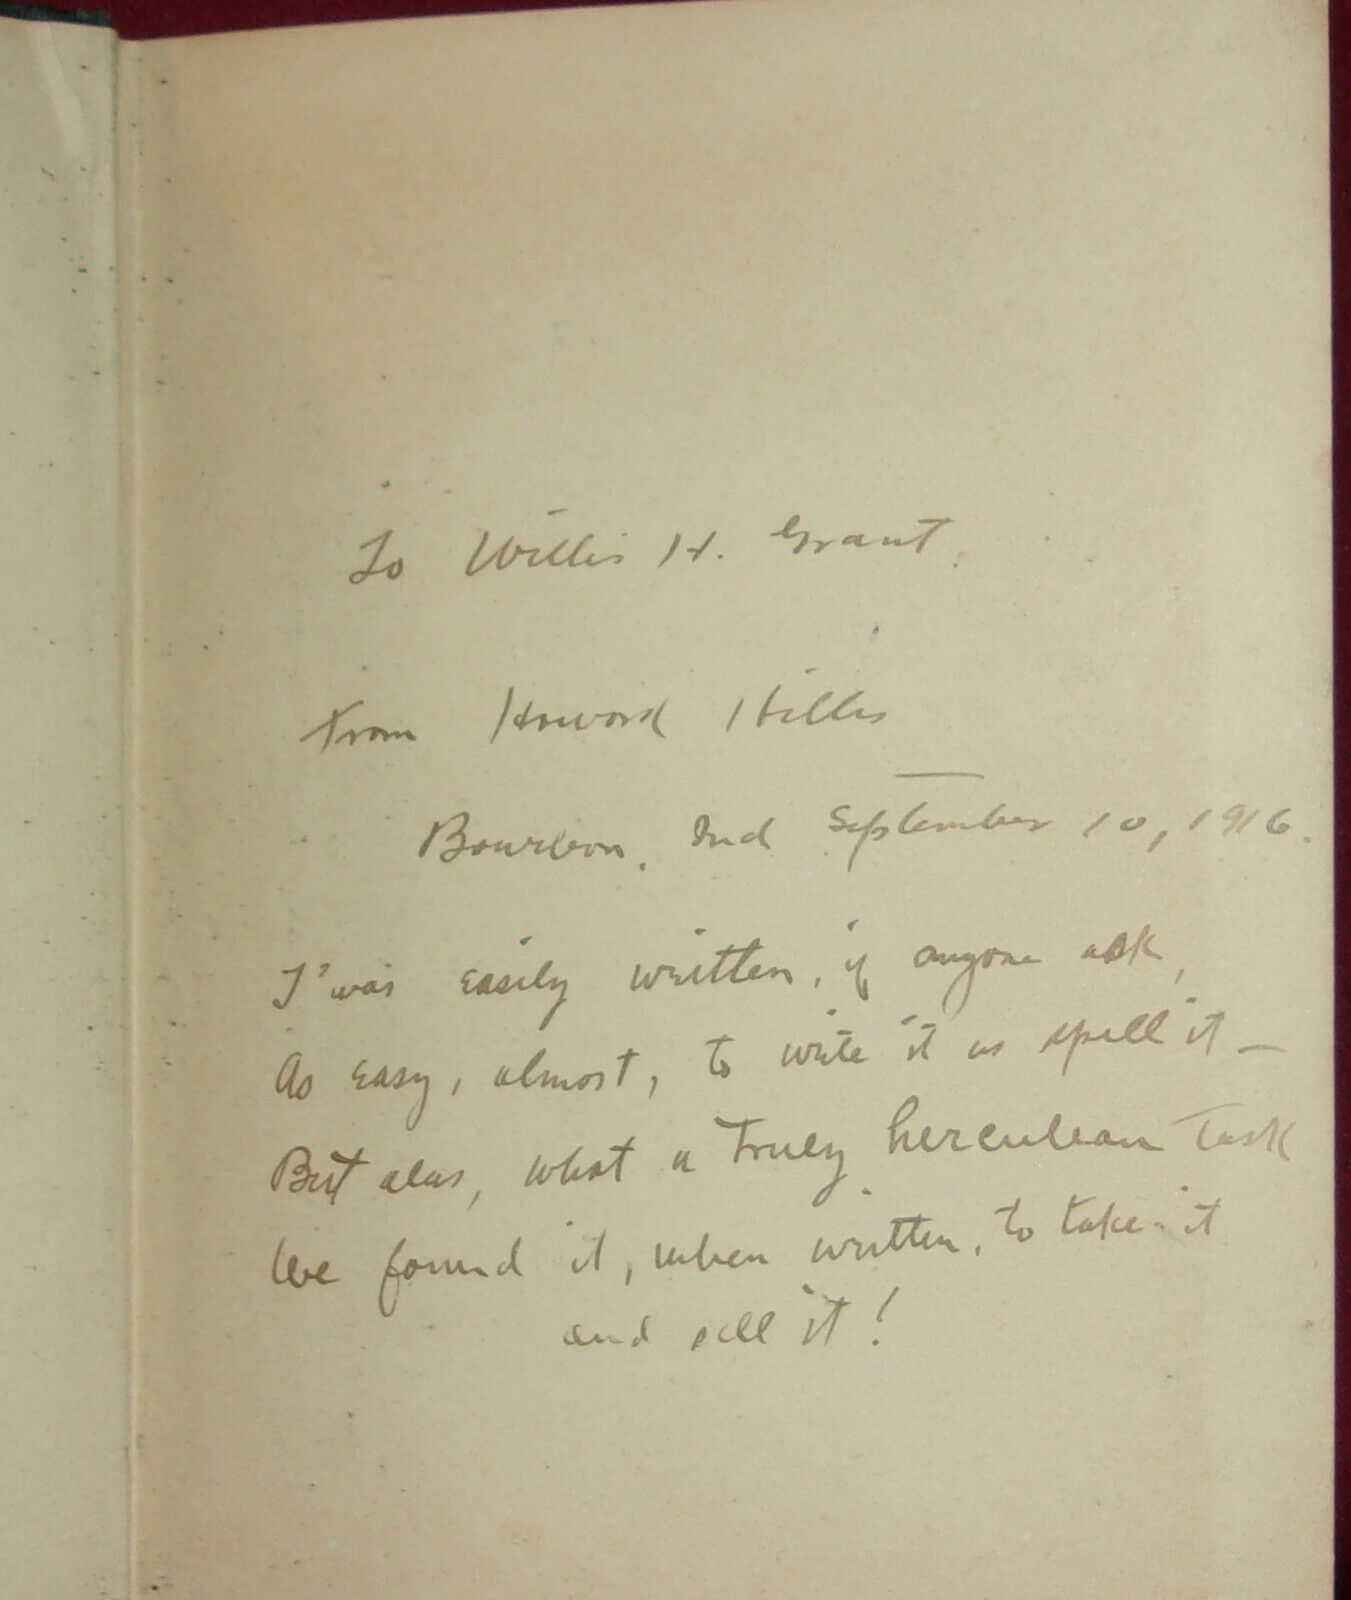 To Willis H. Grant.
From Howard Hillis
Bourbon, Ind September 10, 1916.
T'was easily written, if anyone ask,
As easy, almost, to write it as spell it—
But alas, what a truly herculean task
We found it, when written, to take it
and sell it!